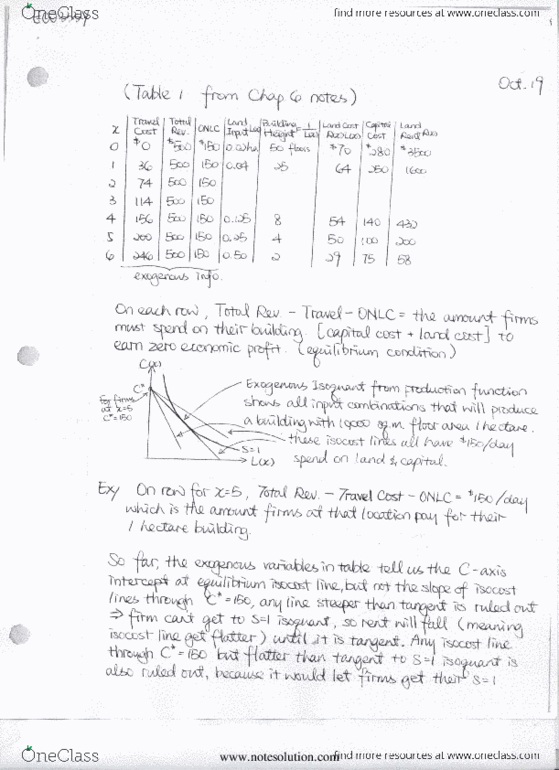 OneClass
find more resources at www.oneclass.com
Oct. 19
(Table 1 from Chap 6 notes)
x | Travel Cost | Total Rev. | ONLC | Land Input L(x) | Building Height = 1/L(x) | Land Cost R(x)L(x) | Capital Cost | Land Rent R(x)
0 | $0 | $500 | $150 | 0.02ha | 50 floors | $70 | $280 | $3500
1 | 36 | 500 | 150 | 0.04 | 25 | 64 | 250 | 1600
2 | 74 | 500 | 150
3 | 114 | 500 | 150
4 | 156 | 500 | 150 | 0.125 | 8 | 54 | 140 | 432
5 | 200 | 500 | 150 | 0.25 | 4 | 50 | 100 | 200
6 | 246 | 500 | 150 | 0.50 | 2 | 29 | 75 | 58
exogenous info.
On each row, Total Rev. - Travel - ONLC = the amount firms
must spend on their building. [capital cost + land cost] to
earn zero economic profit. (equilibrium condition)
C(x)
C*
Eg firms
at x=5
C*=150
S=1
L(x)
Exogenous Isoquant from production function
shows all input combinations that will produce
a building with 10000 sq.m. floor area 1 hectare.
these isocost lines all have $150/day
spend on land & capital.
Ex/ On row for x=5, Total Rev. - Travel Cost - ONLC = $150/day
which is the amount firms at that location pay for their
1 hectare building.
So far, the exogenous variables in table tell us the C-axis
intercept at equilibrium isocost line, but not the slope of isocost
lines through C*=150, any line steeper than tangent is ruled out
⇒ firm can't get to S=1 isoquant, so rent will fall (meaning
isocost line get flatter) until it is tangent. Any isocost line
through C*=150 but flatter than tangent to S=1 isoquant is
also ruled out, because it would let firms get their S=1
OneClass
www.notesolution.com
find more resources at www.oneclass.com